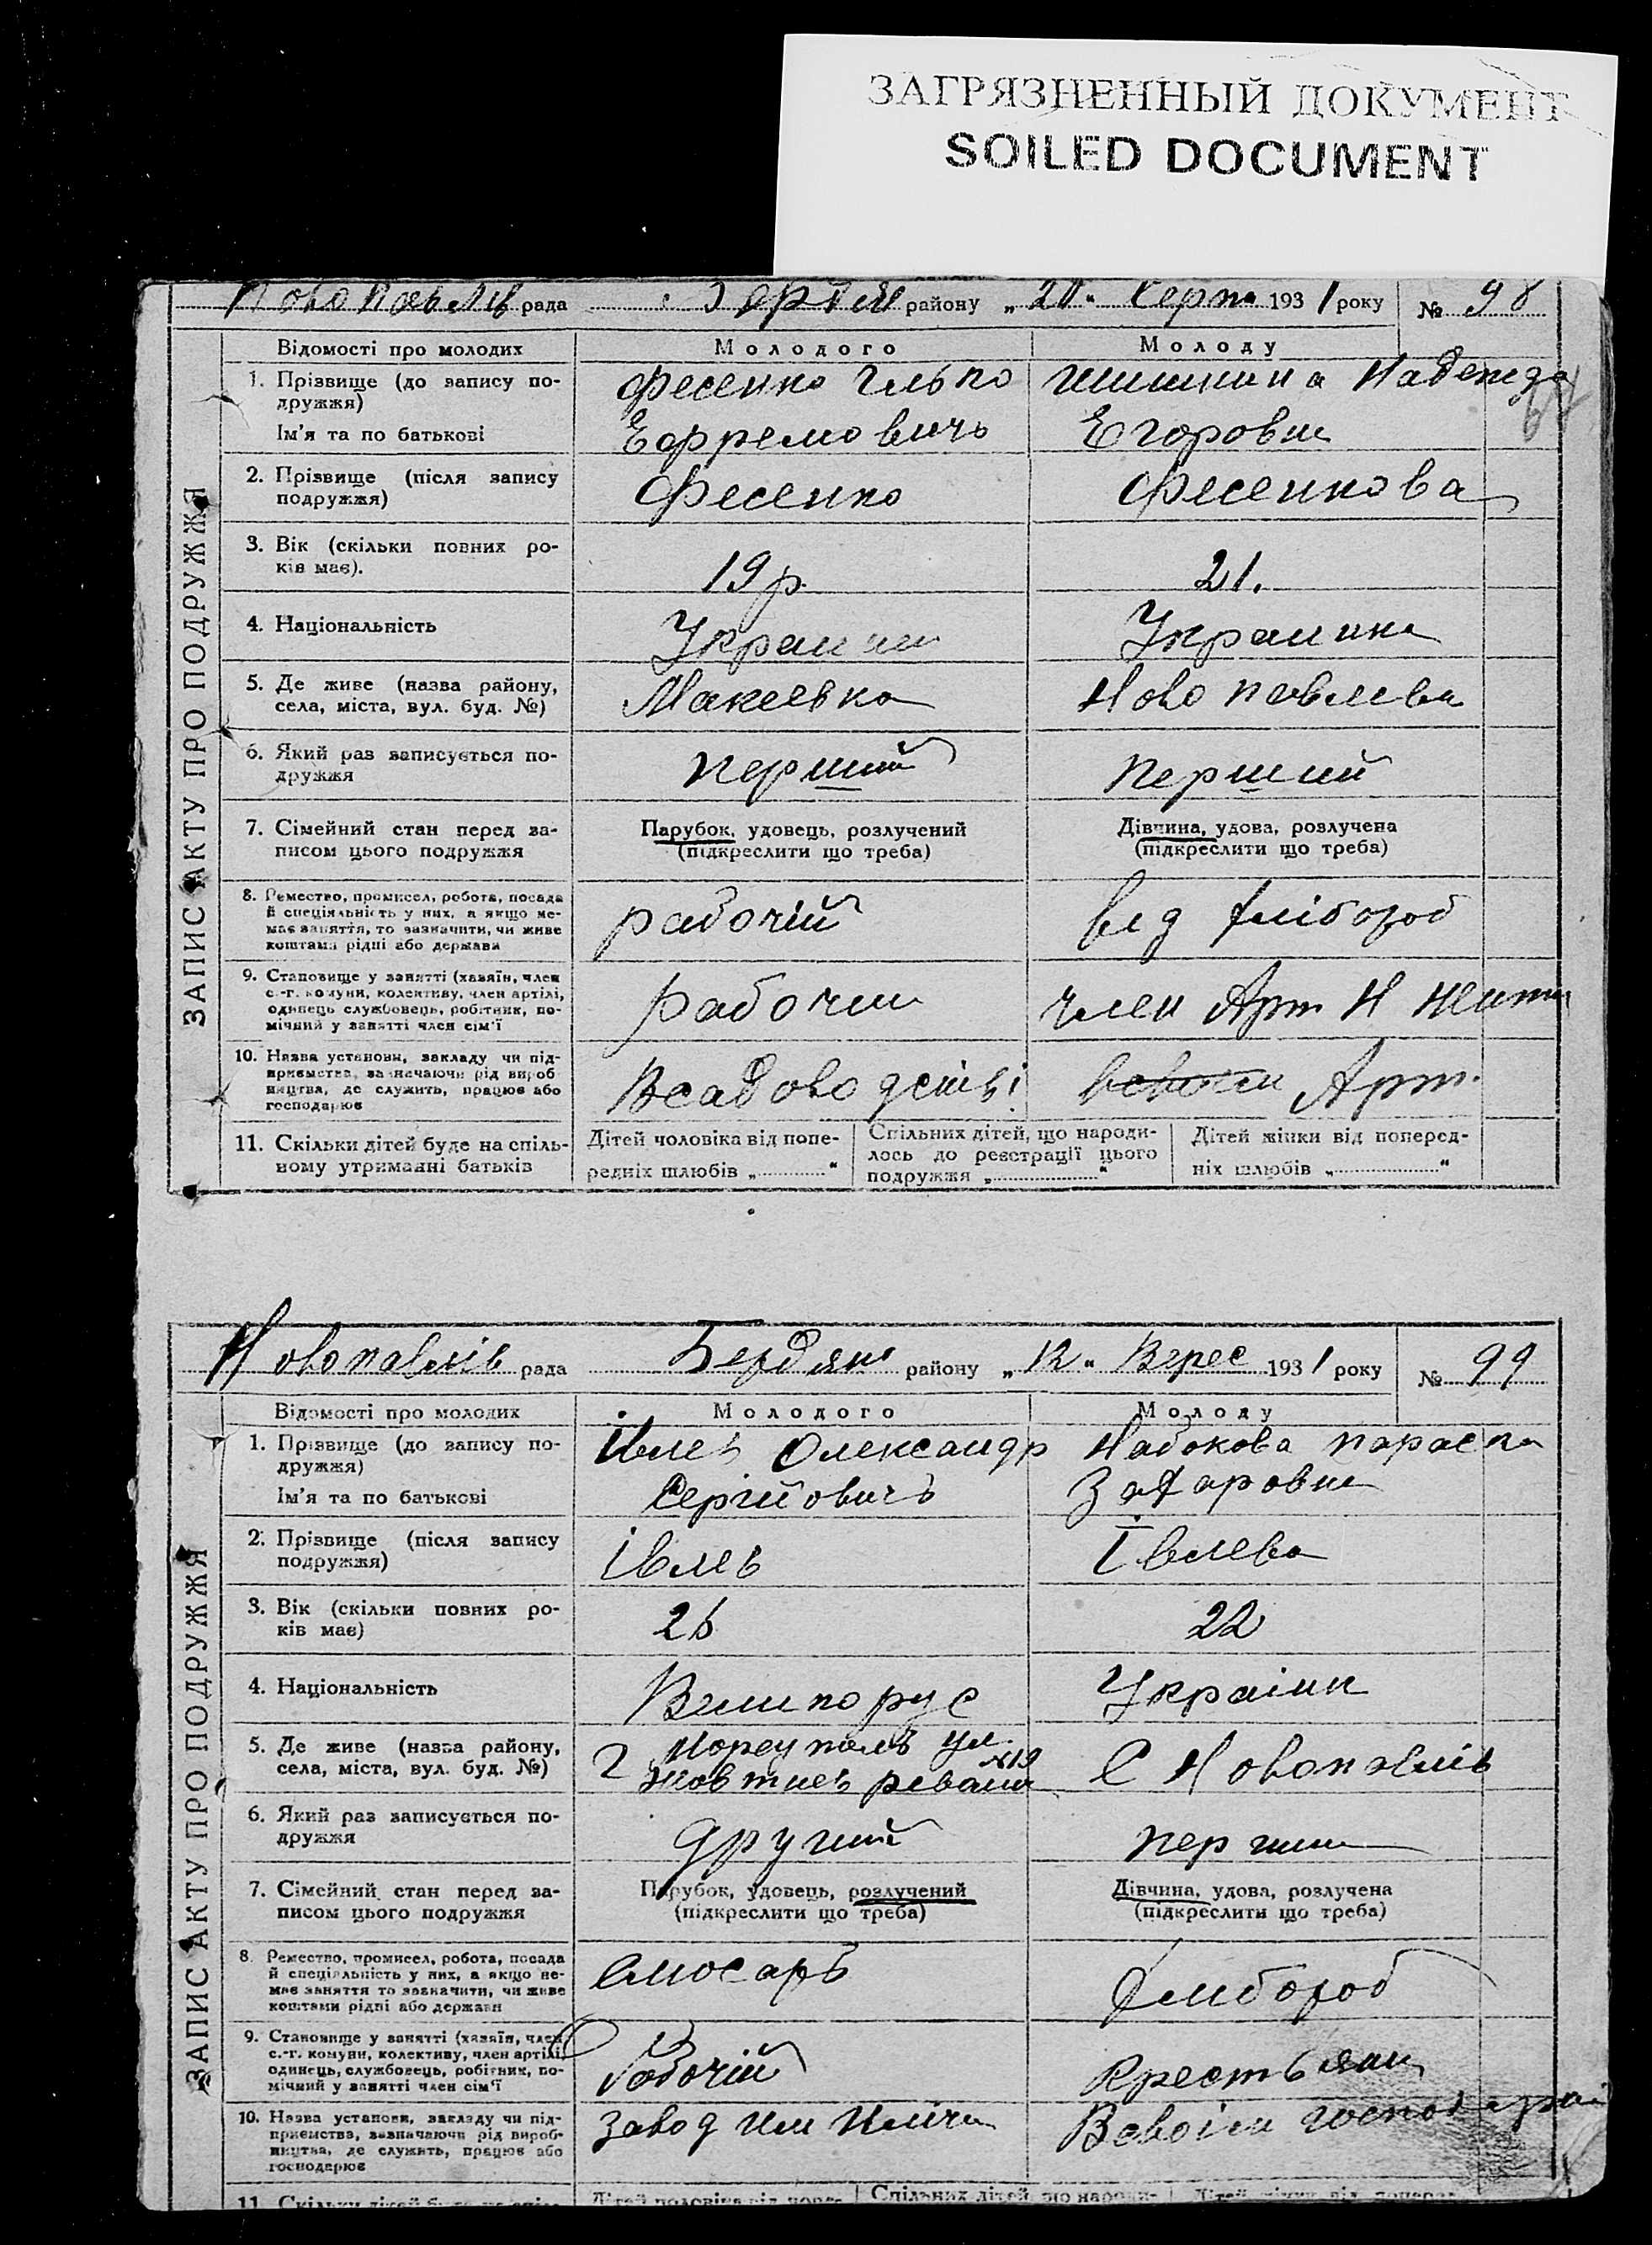 ЗАГРЯЗНЕННЫЙ ДОКУМЕНТ
SOILED DOCUMENT
Новопавлів рада району „20“ Серпн 1931 року № 98
ЗАПИС АКТУ ПРО ПОДРУЖЖЯ
Відомості про молодих Молодого Молоду
1. Прізвище (до запису по-
дружжя)
Ім'я та по батькові
Фесенко Ілько
Ефремовичь
Шишкина Надежда
Егоровна
2. Прізвище (після запису
подружжя)
Фесенко Фесенкова
3. Вік (скільки повних ро-
ків має).
19 р. 21.
4. Національність
Украин Украинка
5. Де живе (назва району,
села, міста, вул. буд. №)
Макеевка Ново Павлівка
6. Який раз записується по-
дружжя
перший перший
7. Сімейний стан перед за-
писом цього подружжя
Парубок, удовець, розлучений
(підкреслити що треба)
Дівчина, удова, розлучена
(підкреслити що треба)
8. Ремество, промисел, робота, посада
й спеціяльність у них, а якщо не-
має заняття, то зазначити, чи живе
коштами рідні або держави
рабочій від хлібороб
9. Становище у занятті (хазяїн, член
с.-г. комуни, колективу, член артілі,
одинець службовець, робітник, по-
мічний у занятті член сім'ї
Рабочий член Арт Н
10. Назва установи, закладу чи під-
приємства, зазначаючи рід вироб-
ництва, де служить, працює або
господарює
Арт.
11. Скільки дітей буде на спіль-
ному утриманні батьків
Дітей чоловіка від попе-
редніх шлюбів „ “
Спільних дітей, що народи-
лось до реєстрації цього
подружжя „ “
Дітей жінки від поперед-
ніх шлюбів „ “
Новопавлів рада Бердянс району „12“ Верес 1931 року № 99
ЗАПИС АКТУ ПРО ПОДРУЖЖЯ
Відомості про молодих Молодого Молоду
1. Прізвище (до запису по-
дружжя)
Ім'я та по батькові
Івлев Олександр
Сергійовичь
Набокова Параска
Захаровна
2. Прізвище (після запису
подружжя)
Івлев Івлева
3. Вік (скільки повних ро-
ків має)
26 22
4. Національність
Великорус Украінк
5. Де живе (назва району,
села, міста, вул. буд. №)
г Мореуполь ул.
№19
С Новопавлів
6. Який раз записується по-
дружжя
другий перший
7. Сімейний стан перед за-
писом цього подружжя
Парубок, удовець, розлучений
(підкреслити що треба)
Дівчина, удова, розлучена
(підкреслити що треба)
8. Ремество, промисел, робота, посада
й спеціяльність у них, а якщо не-
має заняття то зазначити, чи живе
коштами рідні або держави
слюсарь хлибороб
9. Становище у занятті (хазяїн, член
с.-г. комуни, колективу, член артілі,
одинець, службовець, робітник, по-
мічний у занятті член сім'ї
Робочій Крестьянк
10. Назва установи, закладу чи під-
приємства, зазначаючи рід вироб-
ництва, де служить, працює або
господарює
Завод им Иліча
Всвоім
11. Скільки дітей буде на спіль-
Дітей чоловіка від попе-
Спільних дітей, що народи-
Дітей жінки від поперед-